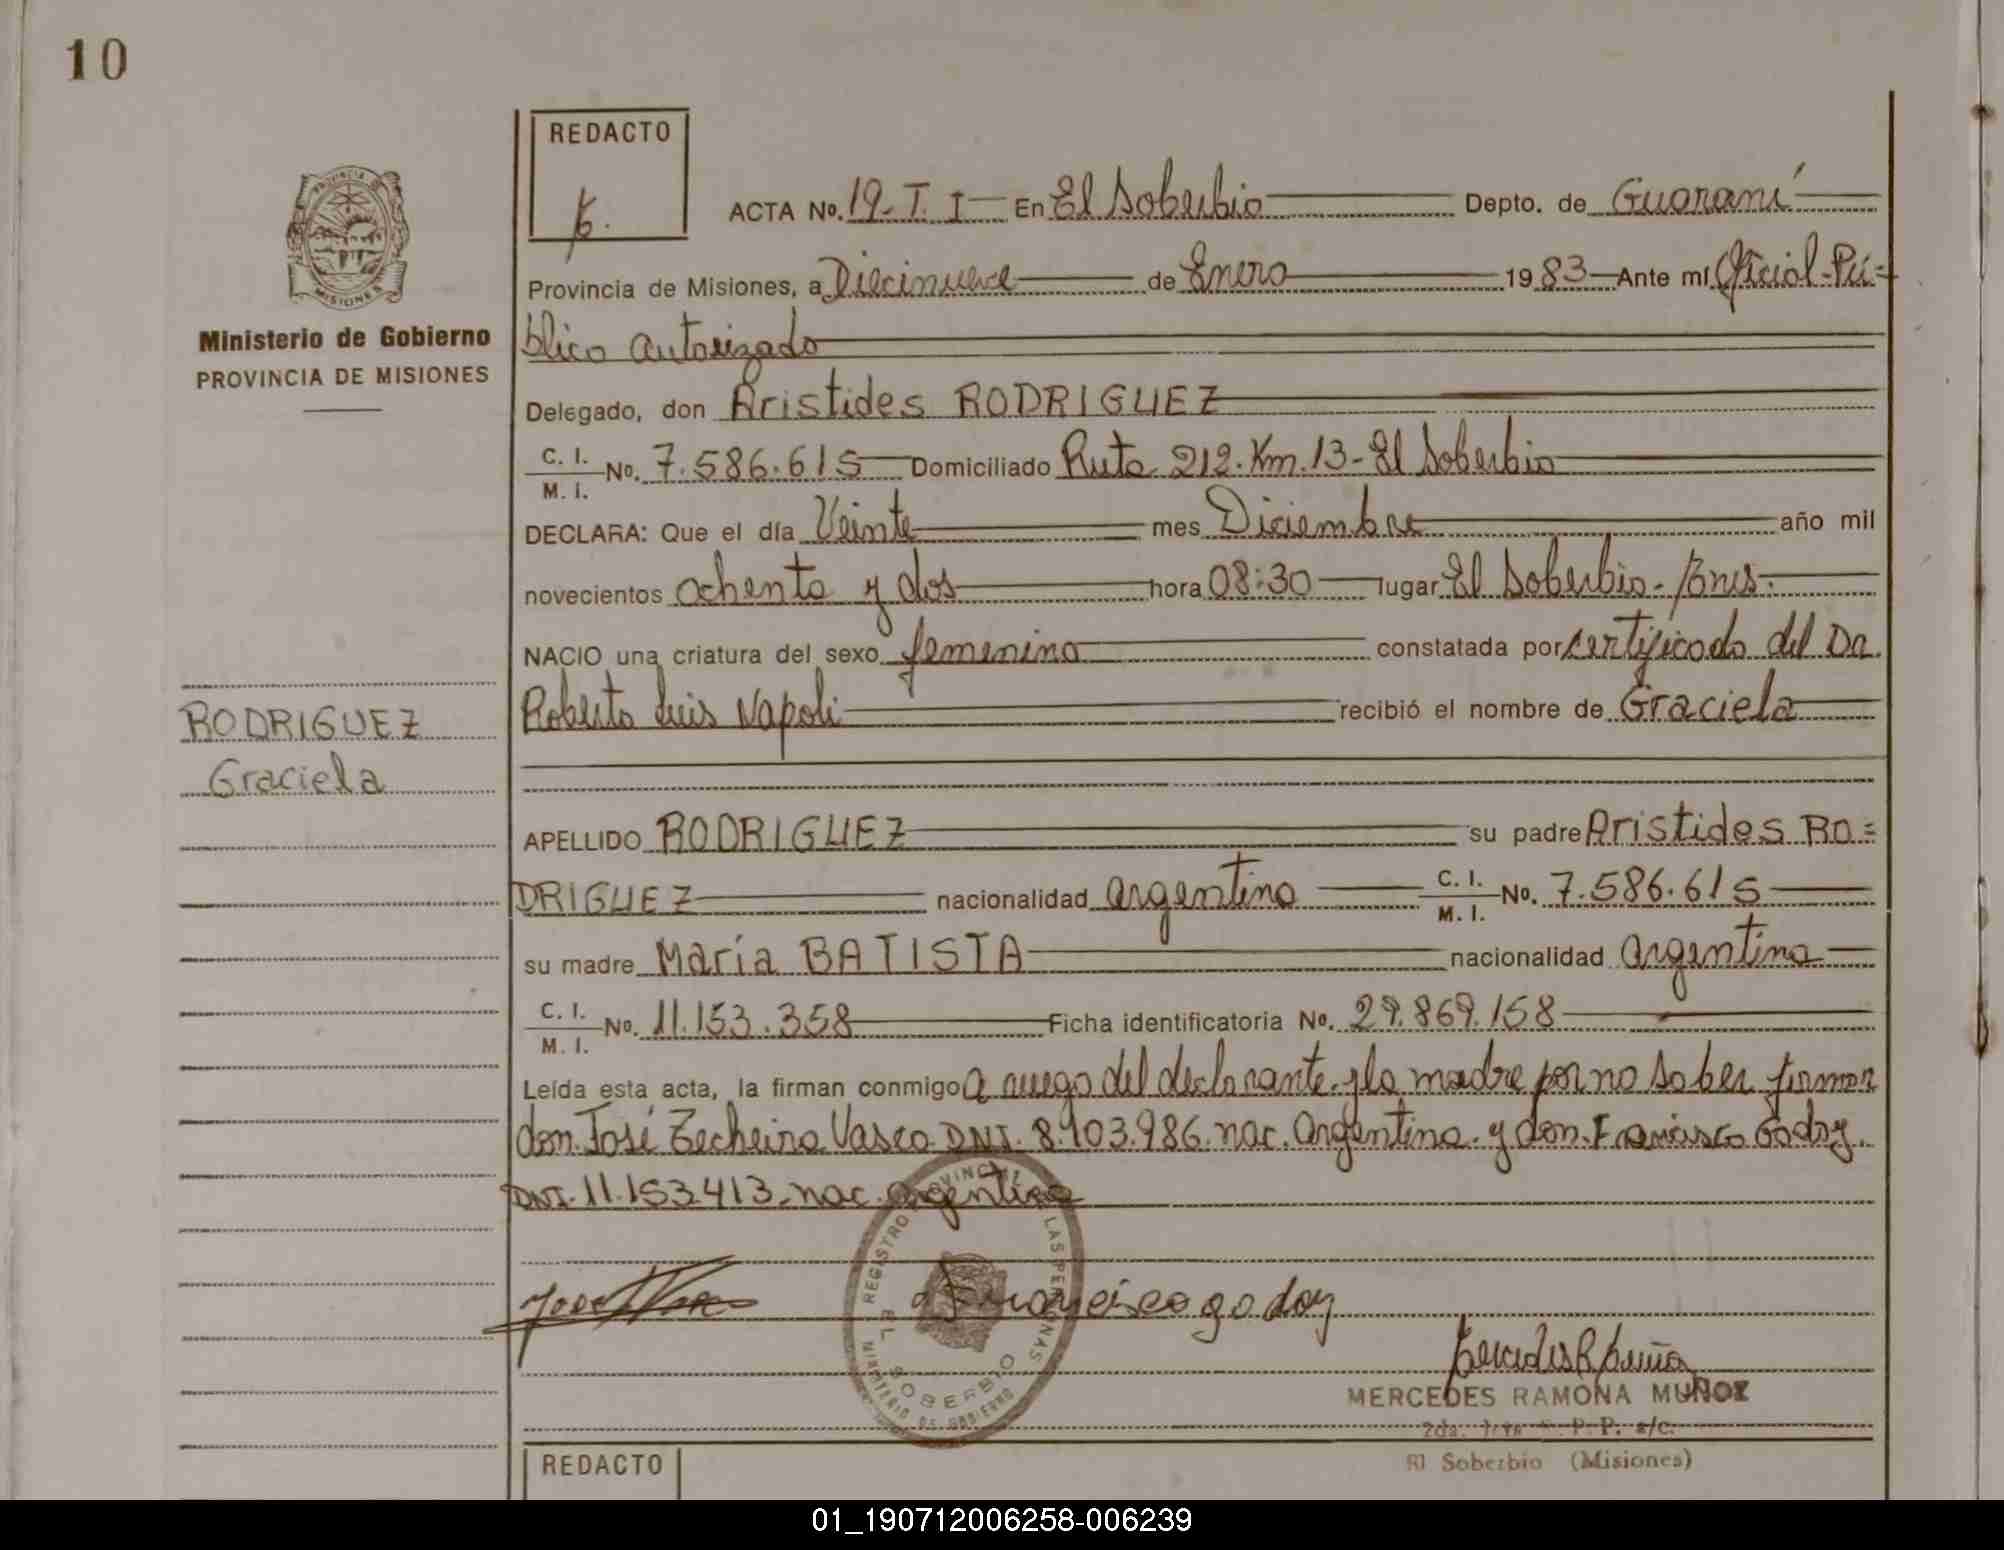 10
REDACTO
ACTA No. 19-T. I En El Soberbio Depto. de Guaraní
Provincia de Misiones, a Diecinueve de Enero 1983 Ante mí Oficial-Pú=
blico autorizado
Ministerio de Gobierno
PROVINCIA DE MISIONES
Delegado, don Aristides RODRIGUEZ
C. I.
M. I. No. 7.586.615 Domiciliado Ruta 212. Km. 13- El Soberbio
DECLARA: Que el día Veinte mes Diciembre año mil
novecientos ochenta y dos hora 08:30 lugar El Soberbio-
NACIO una criatura del sexo femenino constatada por certificado del Dr.
Roberto Luis Napoli recibió el nombre de Graciela
RODRIGUEZ
Graciela
APELLIDO RODRIGUEZ su padre Aristides RO=
DRIGUEZ nacionalidad argentina C. I.
M. I. No. 7.586.615
su madre María BATISTA nacionalidad argentina
C. I.
M. I. No. 11.153.358 Ficha identificatoria No. 29.869.158
Leída esta acta, la firman conmigo a ruego del declarante y la madre por no saber firmar
don José Vasco DNI. 8.103.986. nac. argentina y don Francisco Godoy.
DNI. 11.153.413- nac. argentina
Francisco godoy
REGISTRO PROVINCIAL LAS PERSONAS
EL SOBERBIO
MINISTERIO DE GOBIERNO
MERCEDES RAMONA MUÑOZ
El Soberbio (Misiones)
REDACTO
01_190712006258-006239